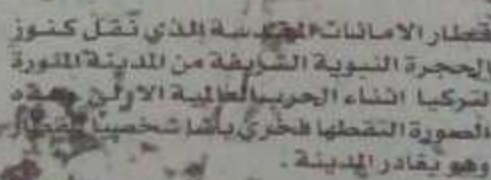 قطار الامانات المقدسة الذي نقل كنوز
الحجرة النبوية الشريفة من المدينة المنورة
لتركيا اثناء الحرب العالمية الاولى وهذه
الصورة التقطها فخري باشا شخصيا للقطار
وهو يغادر المدينة .